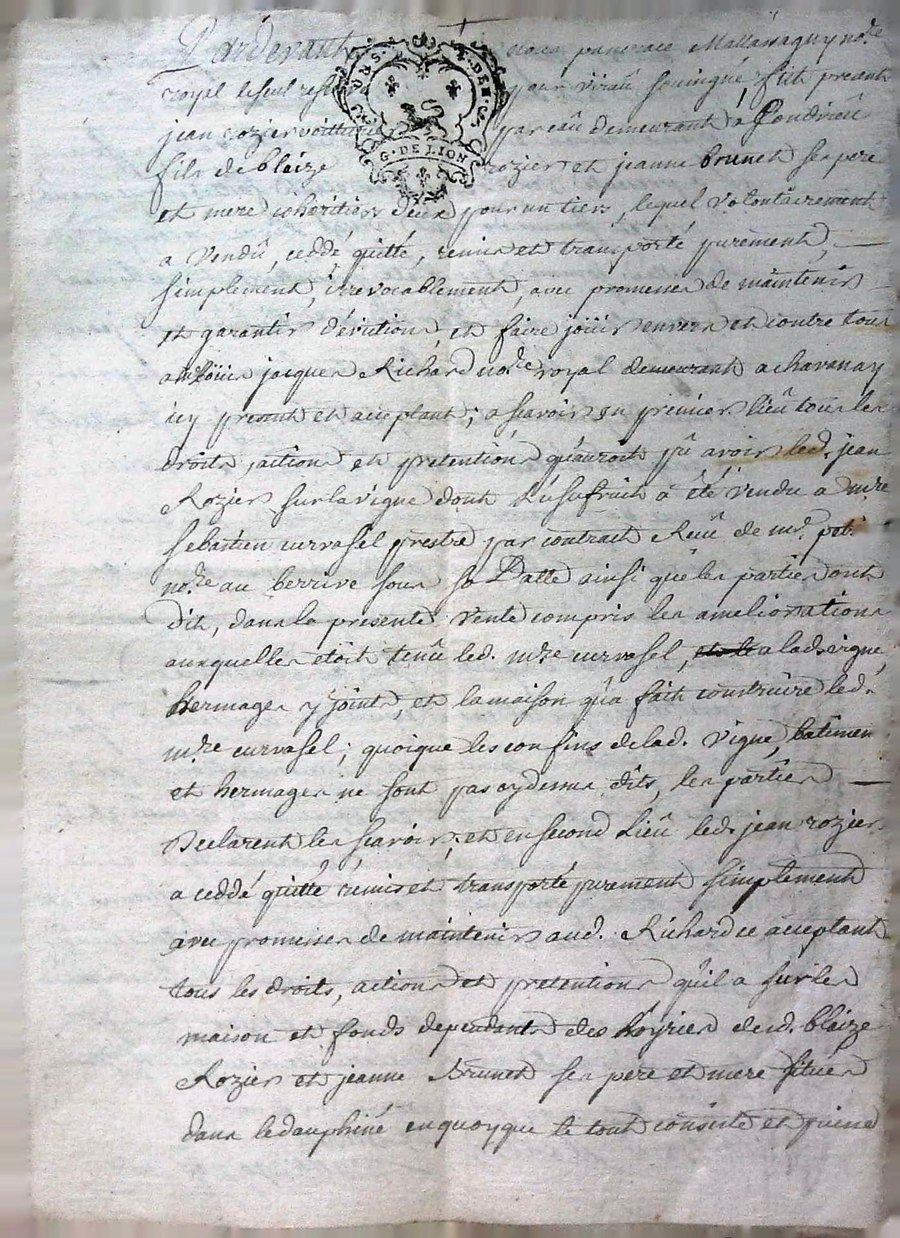 Pardevant
royal le seul reste pour virau soussigné, fut present
jean rozier voitturier par eau demeurant a Condrieu
fils de blaize rozier et jeanne brunet ses pere
et mere coheritier deux pour un tiers, lequel volontairement
a vendû, ceddé quitté, remis et transporté purement,
simplement, irrevocablement, avec promesse de maintenir
et garantir d'éviction, et faire joüir envers et contre tous
a jacques Richard no.re royal demeurant a chavanay
icy present et acceptant; a scavoir en premier lieû tous les
droits, actions et pretentions qu'auroit pû avoir led. jean
Rozier sur la vigne dont l'usufruit a été vendu a m.re
sebastien curvasel prestre par contract Reçû de m.e pet.
no.re au berrive sous sa Datte ainsi que les parties ont
dit, dans la presente vente compris les ameliorations
auxquelles étoit tenû led. m.re curvasel, a lad. vigne,
hermages y joints, et la maison qu'a fait construire led.
m.re curvasel; quoique les confins de lad. vigne, batimen
et hermages ne sont pas cy dessus dits, les parties
Declarent les scavoir; et en second Lieû led. jean rozier
a ceddé quitté remis et transporté purement simplement
avec promesses de maintenir aud. Richard ce acceptant
tous les droits, actions et pretentions qu'il a sur les
maison et fonds dependants des hoyries desd. blaize
Rozier et jeanne Brunet ses pere et mere situés
dans le dauphiné en quoy que le tout consiste et puisse
G. DE LION